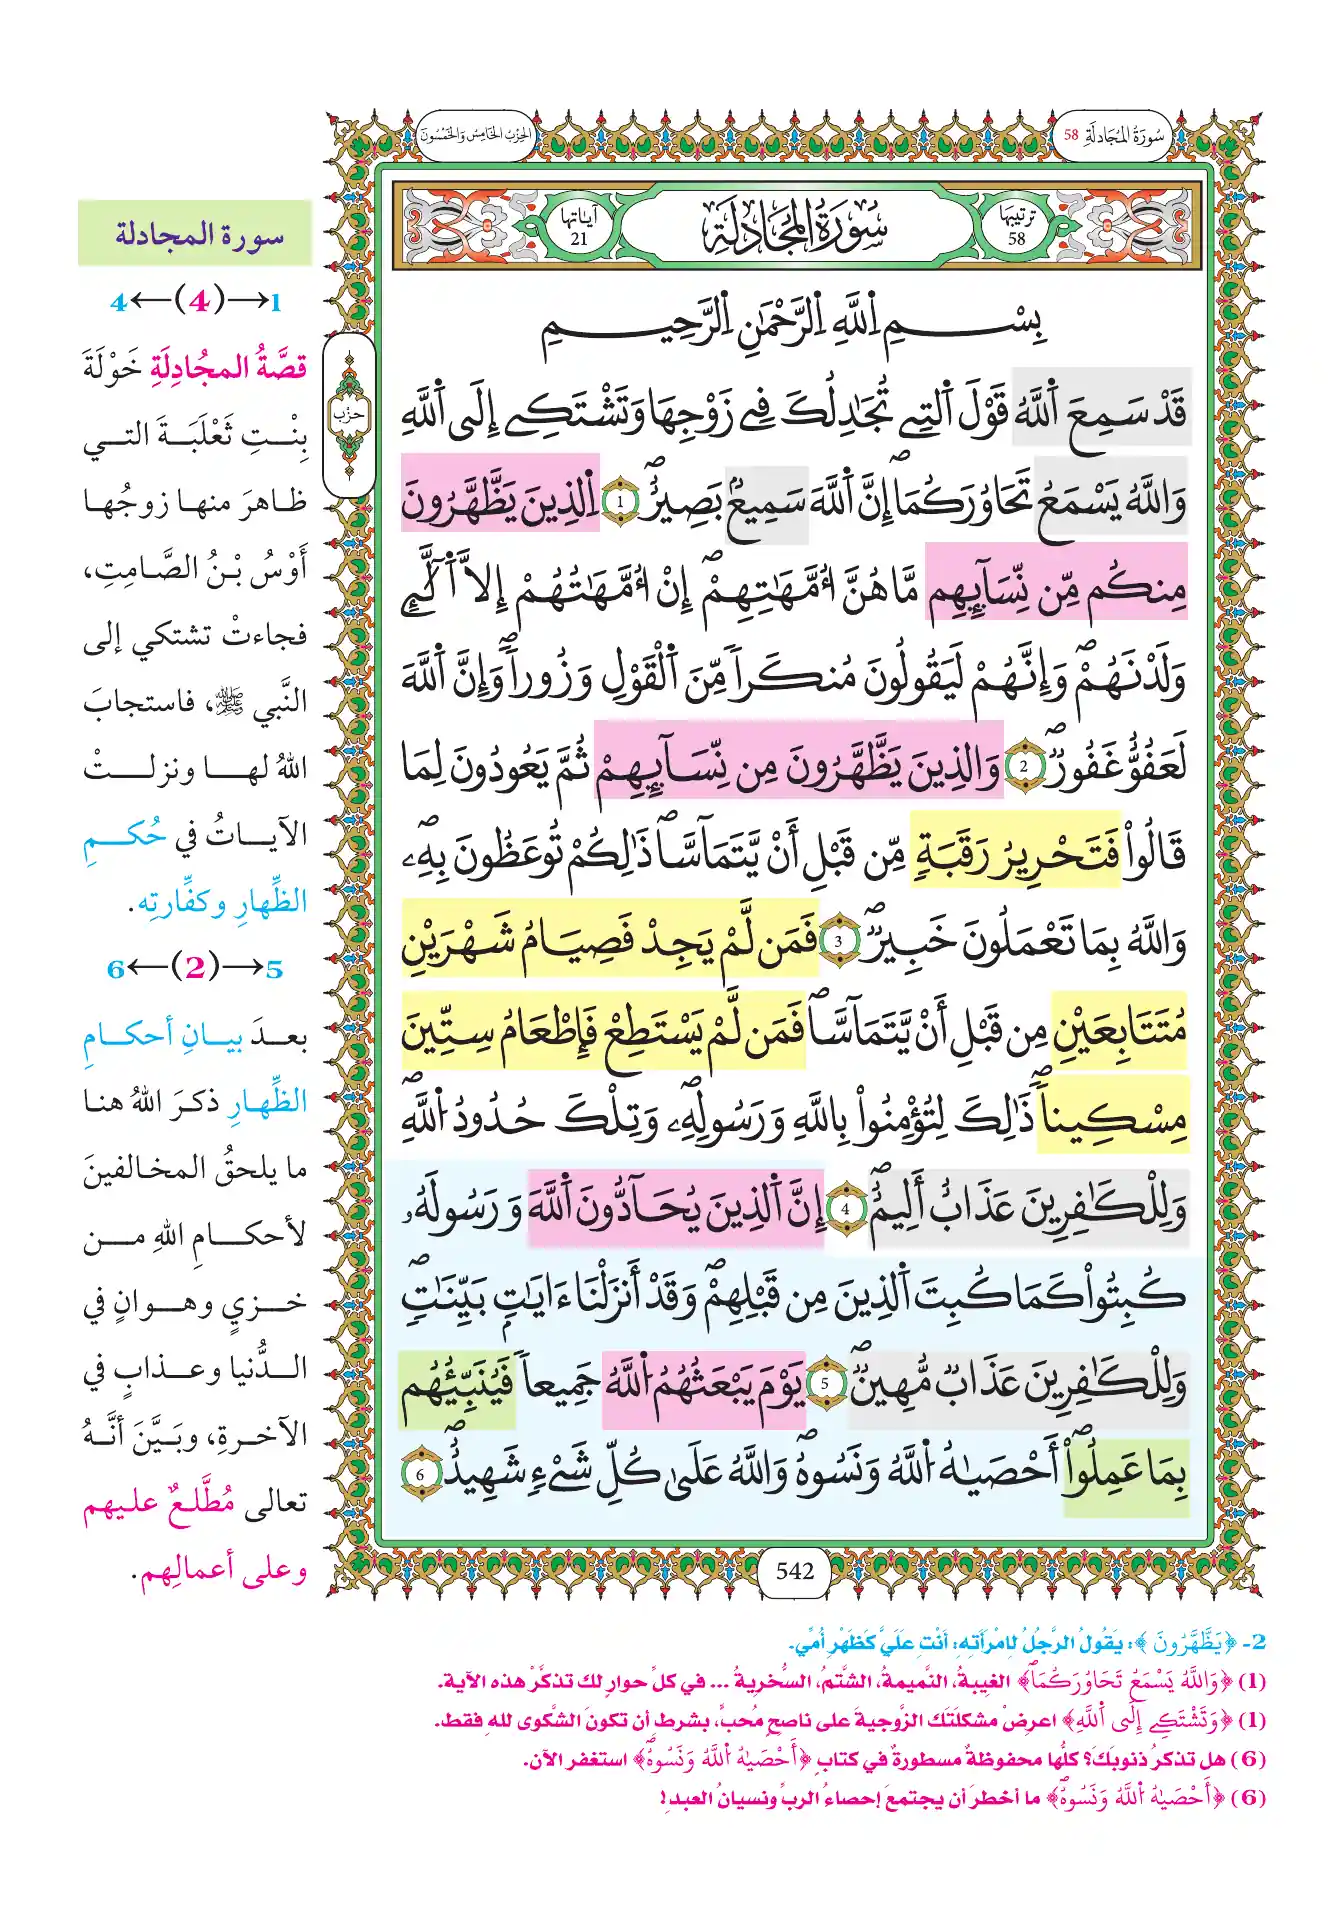 سُورَةُ المُجَادلَةِ 58
الحِزْبُ الخَامِسُ وَالخَمْسُونَ
ترتيبها
58
سُورَةُ المُجَادلَةِ
آيَاتها
21
بِسْمِ اِ۬للَّهِ اِ۬لرَّحْمَٰنِ اِ۬لرَّحِيمِ
قَدْ سَمِعَ اَ۬للَّهُ قَوْلَ اَ۬لتِے تُجَٰدِلُكَ فِے زَوْجِهَا وَتَشْتَكِے إِلَى اَ۬للَّهِ
وَاللَّهُ يَسْمَعُ تَحَاوُرَكُمَاۖ إِنَّ اَ۬للَّهَ سَمِيعُۢ بَصِيرٌۖ 1 اِ۬لذِينَ يَظَّهَّرُونَ
مِنكُم مِّن نِّسَآئِهِم مَّا هُنَّ أُمَّهَٰتِهِمْۖ إِنْ أُمَّهَٰتُهُمْ إِلَّا اَ۬لَّٰٓـِٕے
وَلَدْنَهُمْۖ وَإِنَّهُمْ لَيَقُولُونَ مُنكَراٗ مِّنَ اَ۬لْقَوْلِ وَزُوراٗۖ وَإِنَّ اَ۬للَّهَ
لَعَفُوٌّ غَفُورٞۖ 2 وَالذِينَ يَظَّهَّرُونَ مِن نِّسَآئِهِمْ ثُمَّ يَعُودُونَ لِمَا
قَالُواْ فَتَحْرِيرُ رَقَبَةٖ مِّن قَبْلِ أَنْ يَّتَمَآسَّاۖ ذَٰلِكُمْ تُوعَظُونَ بِهِۦۖ
وَاللَّهُ بِمَا تَعْمَلُونَ خَبِيرٞۖ 3 فَمَن لَّمْ يَجِدْ فَصِيَامُ شَهْرَيْنِ
مُتَتَابِعَيْنِ مِن قَبْلِ أَنْ يَّتَمَآسَّاۖ فَمَن لَّمْ يَسْتَطِعْ فَإِطْعَامُ سِتِّينَ
مِسْكِيناٗۖ ذَٰلِكَ لِتُؤْمِنُواْ بِاللَّهِ وَرَسُولِهِۦۖ وَتِلْكَ حُدُودُ اُ۬للَّهِۖ
وَلِلْكَٰفِرِينَ عَذَابٌ أَلِيمٌۖ 4 إِنَّ اَ۬لذِينَ يُحَآدُّونَ اَ۬للَّهَ وَرَسُولَهُۥ
كُبِتُواْ كَمَا كُبِتَ اَ۬لذِينَ مِن قَبْلِهِمْۖ وَقَدْ أَنزَلْنَا ءَايَٰتِۢ بَيِّنَٰتٖۖ
وَلِلْكَٰفِرِينَ عَذَابٞ مُّهِينٞۖ 5 يَوْمَ يَبْعَثُهُمُ اُ۬للَّهُ جَمِيعاٗ فَيُنَبِّئُهُم
بِمَا عَمِلُوٓاْۖ أَحْصَيٰهُ اُ۬للَّهُ وَنَسُوهُۖ وَاللَّهُ عَلَىٰ كُلِّ شَےْءٖ شَهِيدٌۖ 6
542
حزب
سورة المجادلة
1→(4)←4
قصَّةُ المجُادِلَةِ خَوْلَةَ
بِنْتِ ثَعْلَبَةَ التي
ظاهرَ منها زوجُها
أَوْسُ بْنُ الصَّامِتِ،
فجاءتْ تشتكي إلى
النَّبي ﷺ، فاستجابَ
اللهُ لها ونزلتْ
الآياتُ في حُكمِ
الظِّهارِ وكفِّارتِه.
5→(2)←6
بعدَ بيانِ أحكامِ
الظِّهارِ ذكرَ اللهُ هنا
ما يلحقُ المخالفينَ
لأحكامِ اللهِ من
خزيٍ وهوانٍ في
الدُّنيا وعذابٍ في
الآخرةِ، وبَيَّنَ أنَّهُ
تعالى مُطَّلعٌ عليهم
وعلى أعمالِهم.
2- ﴿يَظَّهَّرُونَ﴾: يَقُولُ الرَّجُلُ لِامْرَأَتِهِ: أَنْتِ عَلَيَّ كَظَهْرِ أُمِّي.
(1) ﴿وَاللَّهُ يَسْمَعُ تَحَاوُرَكُمَاۖ﴾ الغيبةُ، النَّميمةُ، الشَّتمُ، السُّخريةُ ... في كلِّ حوارٍ لك تذكَّرْ هذه الآية.
(1) ﴿وَتَشْتَكِے إِلَى اَ۬للَّهِ﴾ اعرِضْ مشكلَتَك الزَّوجيةَ على ناصحٍ مُحبٍّ، بشرطِ أن تكونَ الشَّكوى للهِ فقط.
(6) هل تذكرُ ذنوبَكَ؟ كلُّها محفوظةٌ مسطورةٌ في كتابٍ ﴿أَحْصَيٰهُ اُ۬للَّهُ وَنَسُوهُۖ﴾ استغفر الآن.
(6) ﴿أَحْصَيٰهُ اُ۬للَّهُ وَنَسُوهُۖ﴾ ما أخطرَ أن يجتمعَ إحصاءُ الربِّ ونسيانُ العبدِ!